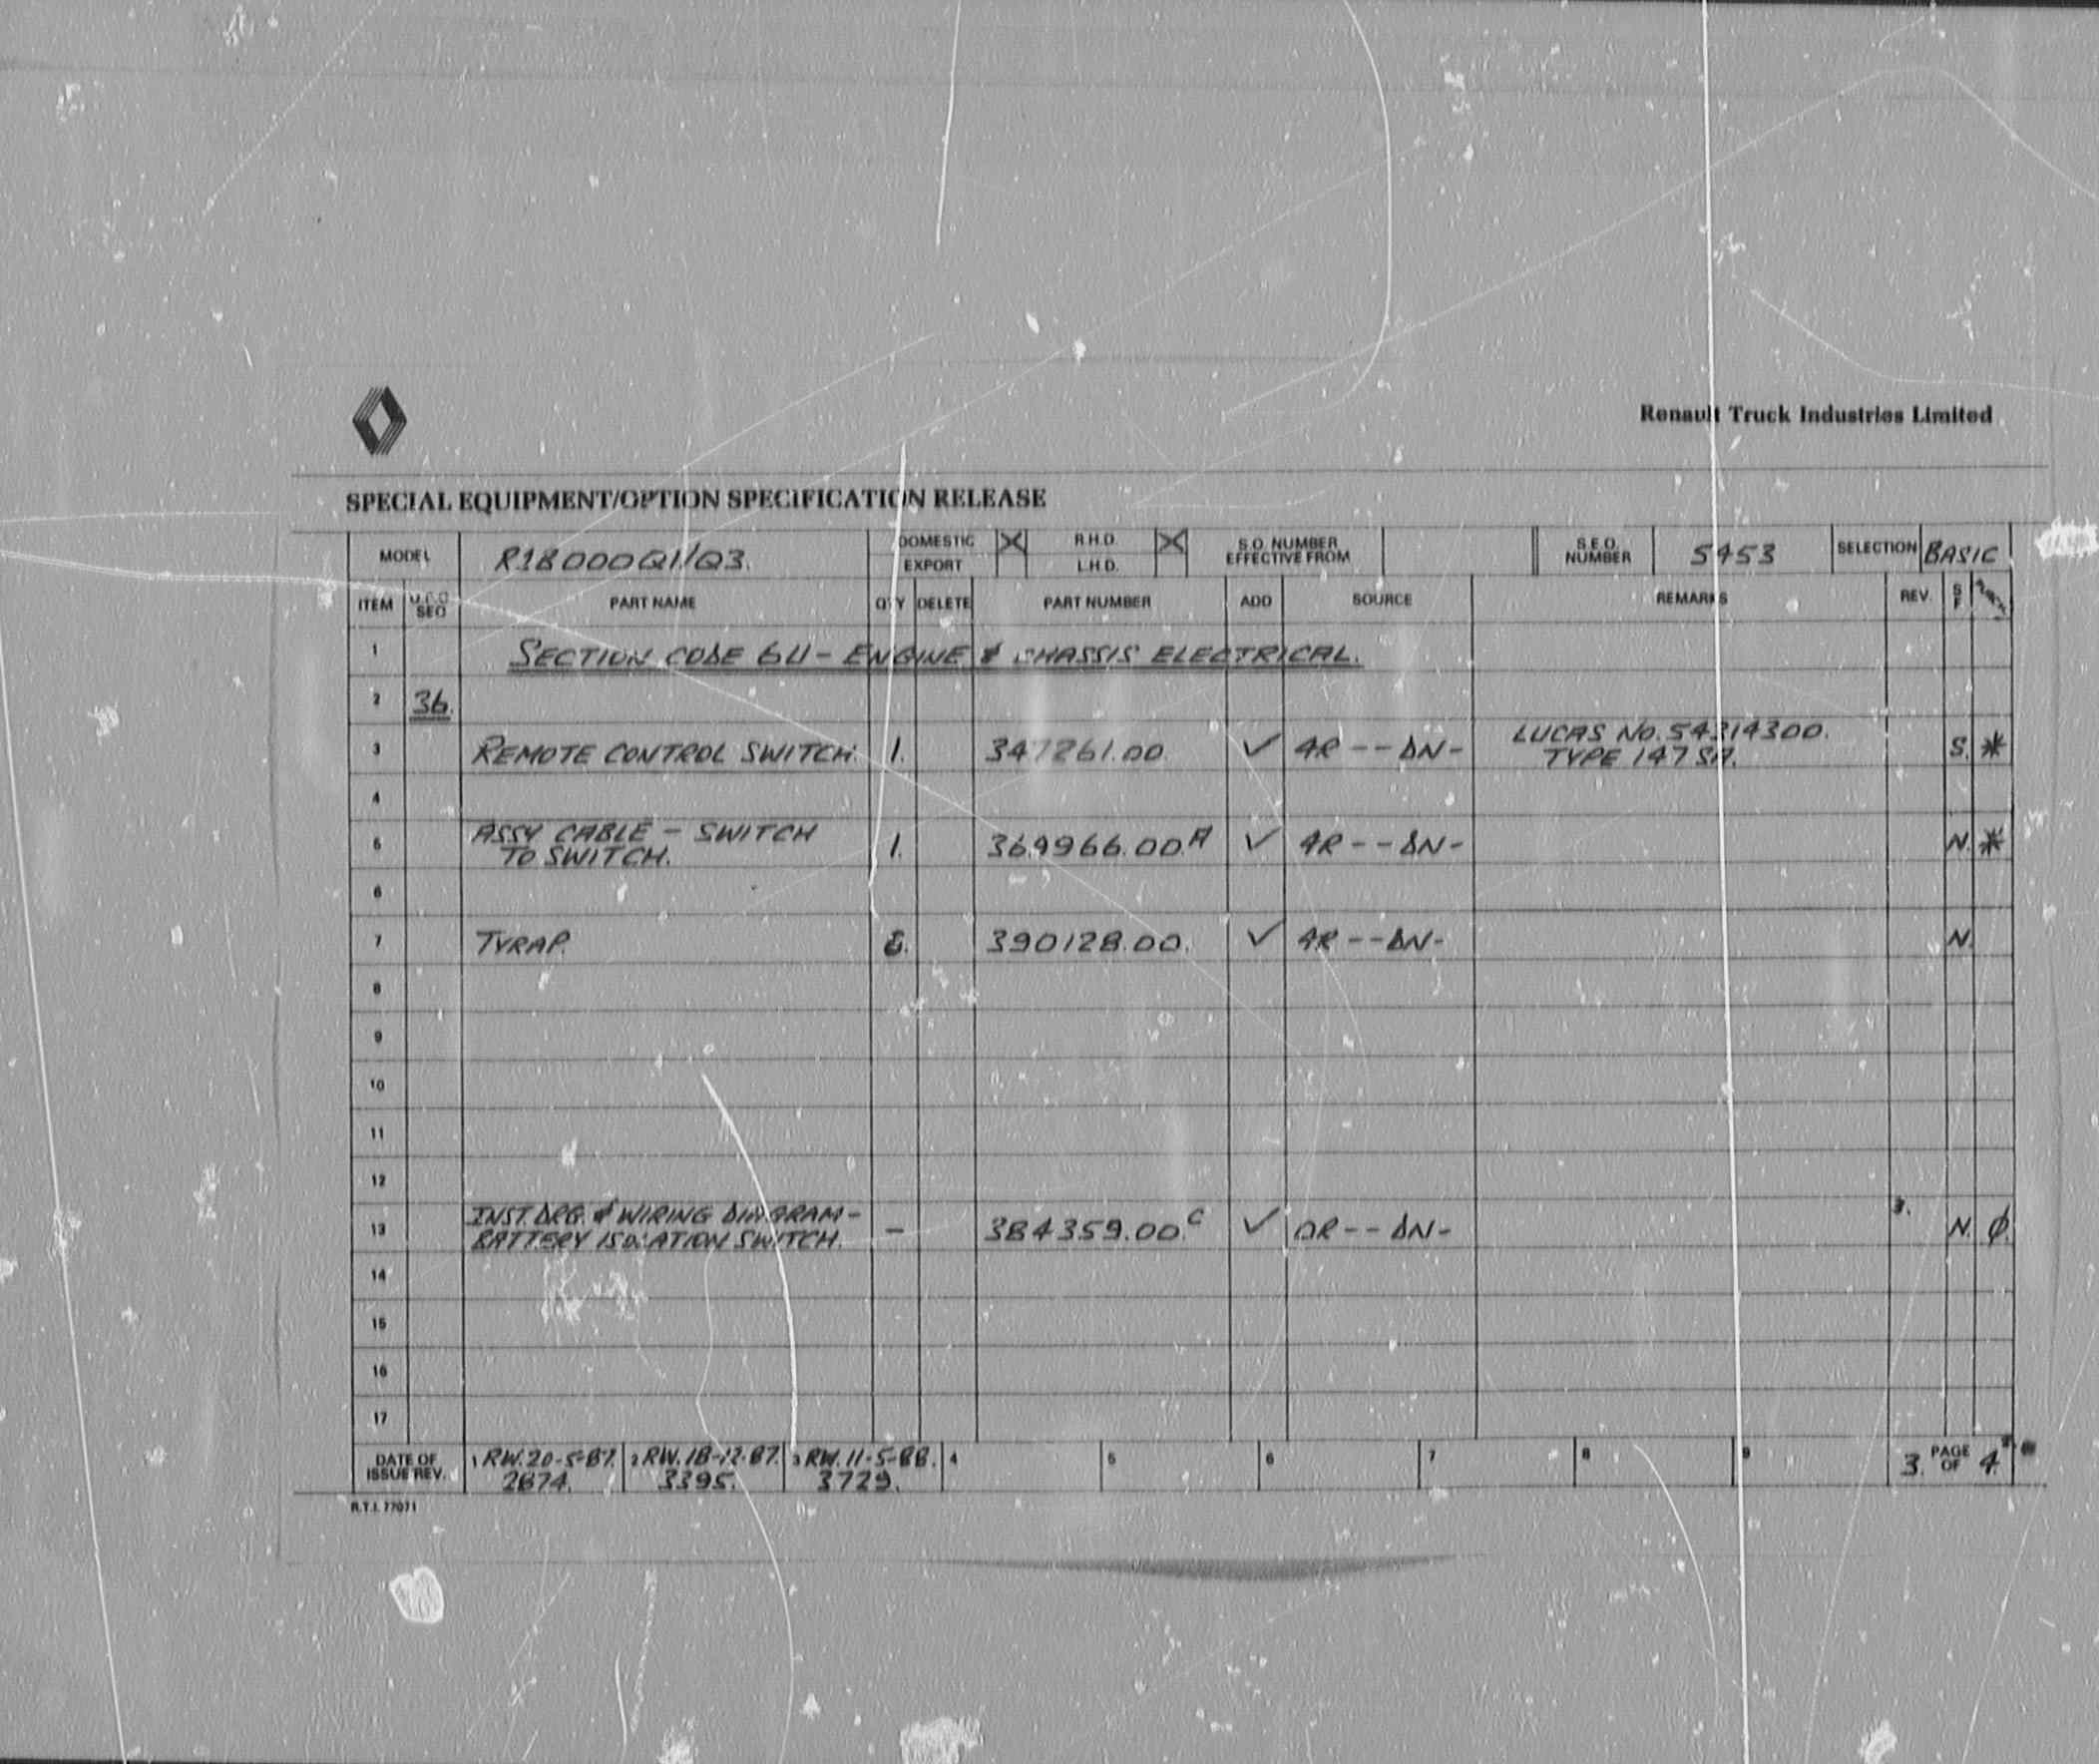 Renault Truck Industries Limited
SPECIAL EQUIPMENT/OPTION SPECIFICATION RELEASE
MODEL R18000Q1/Q3. DOMESTIC X R.H.D. X S.O. NUMBER EFFECTIVE FROM S.E.O. NUMBER 5453 SELECTION BASIC
EXPORT L.H.D.
ITEM SEQ PART NAME QTY DELETE PART NUMBER ADD SOURCE REMARKS REV. S F
1 SECTION CODE 6U - ENGINE & CHASSIS ELECTRICAL.
2 36.
3 REMOTE CONTROL SWITCH. 1. 347261.00. ✓ 4R -- DN - LUCAS No. 54314300. S. *
TYPE 147SA.
4
5 ASSY CABLE - SWITCH 1. 369966.00.A ✓ 4R -- DN - N. *
TO SWITCH.
6
7 TYRAP. 8. 390128.00. ✓ 4R -- DN - N.
8
9
10
11
12
13 INST. DRG. & WIRING DIAGRAM - – 384359.00.C ✓ 0R -- DN - 3. N. Ø.
BATTERY ISOLATION SWITCH.
14
15
16
17
DATE OF ISSUE REV. 1 RW. 20-5-87. 2 RW. 18-12-87. 3 RW. 11-5-88. 4 5 6 7 8 9 3. PAGE OF 4.
2874. 3395. 3729.
R.T.I. 77071